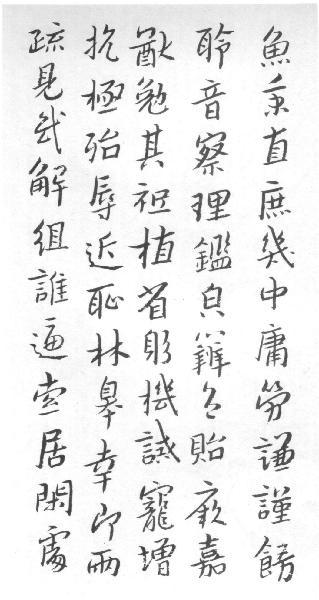 魚秉直庶幾中庸勞謙謹飭
聆音察理鑑皃辯色貽厥嘉
猷勉其祗植省躬機誡寵增
抗極殆辱近恥林皋幸即兩
疏見幾解組誰逼索居閑處